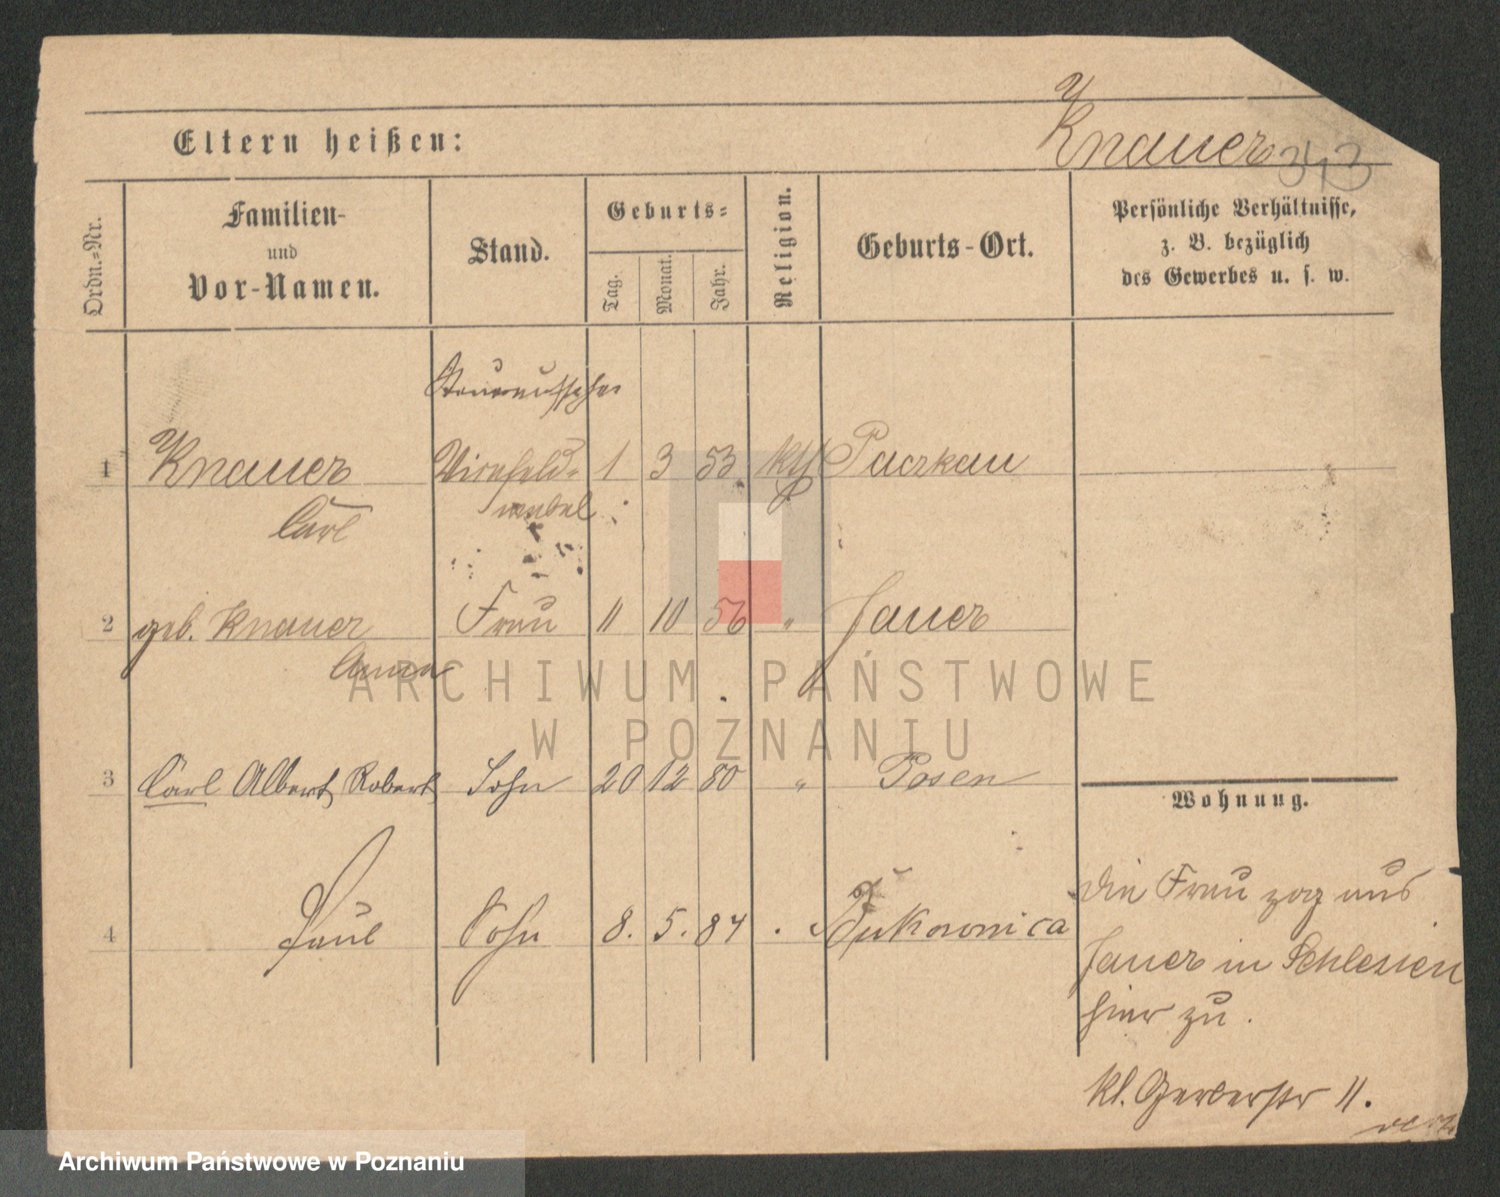 Eltern heißen:
Knauer 343
Ordn.-Nr.
Familien-
und
Vor-Namen.
Stand.
Geburts-
Tag.
Monat.
Jahr.
Religion.
Geburts-Ort.
Persönliche Verhältnisse,
z. B. bezüglich
des Gewerbes u. s. w.
Steueraufseher
1 Knauer Vizefeld- 1 3 53 kth Paczkau
Carl webel
2 geb. Knauer Frau 11 10 56 " Jauer
Anna
3 Carl Albert Robert Sohn 20 12 80 " Posen
Wohnung.
4 Paul Sohn 8. 5. 84 .
die Frau zog aus
Jauer in Schlesien
hier zu.
kl. Gerberstr 11.
ARCHIWUM PAŃSTWOWE
W POZNANIU
Archiwum Państwowe w Poznaniu